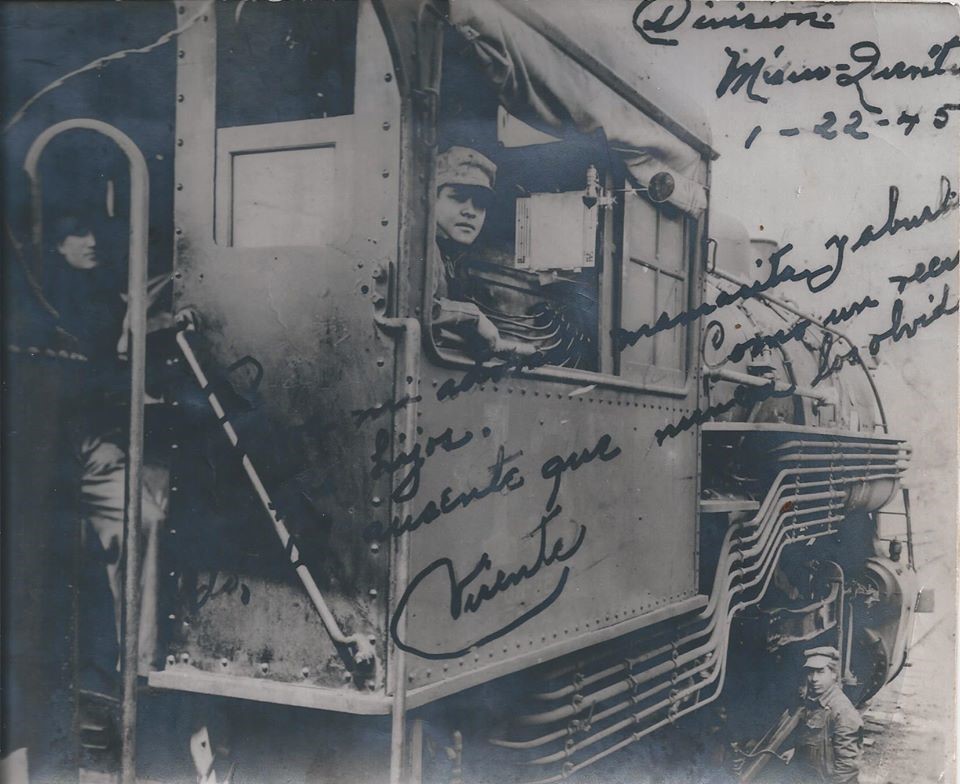 Division
México-Queréta
1-22-45
mi mamacita y abueli
hijos. Como un recu
ausente que nunca los olvid
Vicente